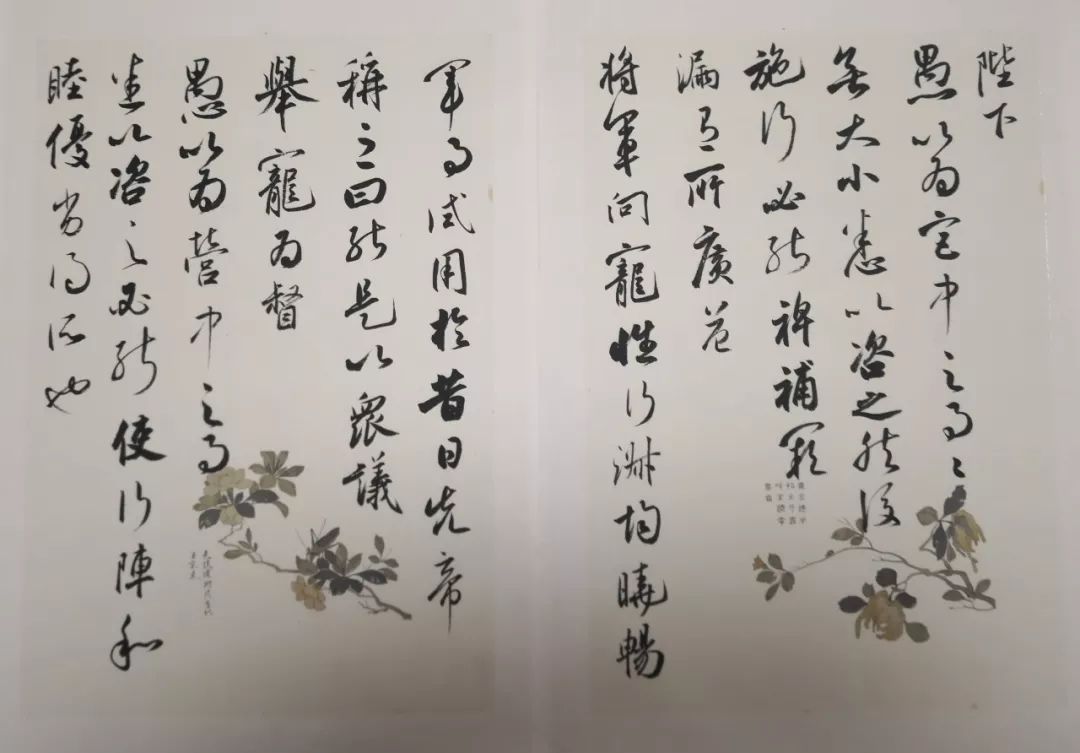 陛下
愚以為宮中之事々
無大小悉以咨之然後
施行必能裨補闕
漏有所廣益
將軍向寵性行淑均曉暢
軍事試用於昔日先帝
稱之曰能是以眾議
舉寵為督
愚以為營中之事
悉以咨之必能使行陣和
睦優劣得所也